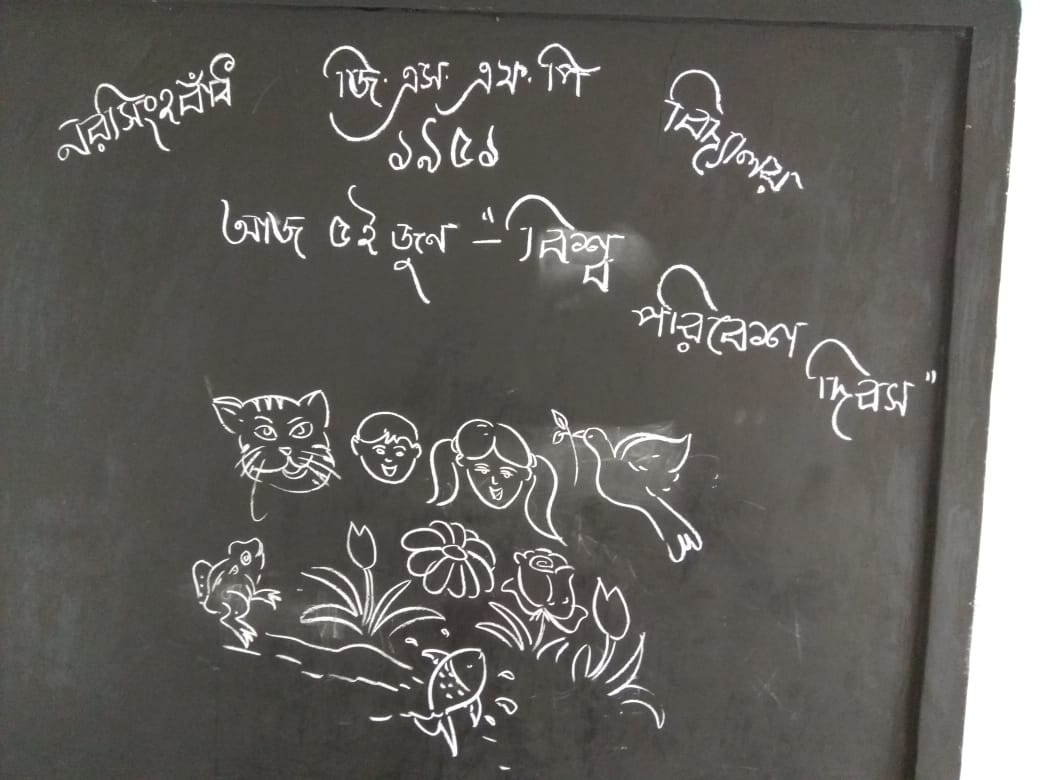 নরসিংহবাঁধ জি. এস. এফ. পি বিদ্যালয়
১৯৫১
আজ ৫ই জুন - "বিশ্ব
পরিবেশ
দিবস"